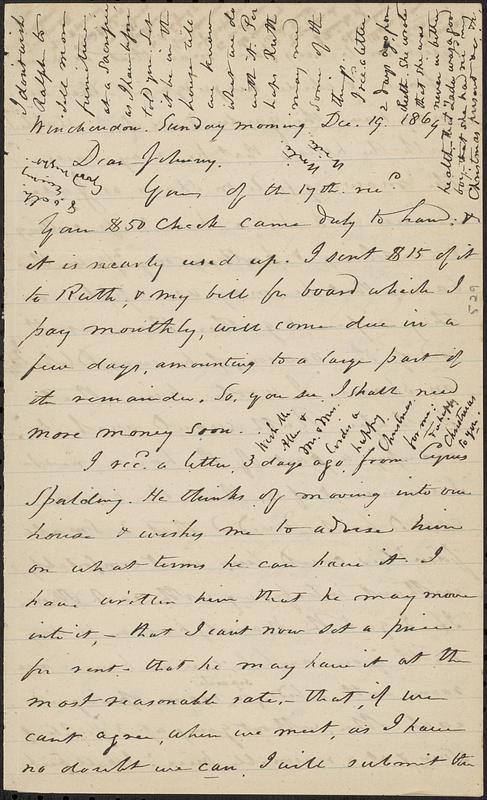 Winchendon. Sunday morning Dec. 19. 1869
Dear Johnny.
Yours of the 17th. rec.d
Your $50 check came duly to hand: &
it is nearly used up. I sent $15 of it
to Ruth, & my bill for board which I
pay monthly, will come due in a
few days, amounting to a large part of
the remainder. So, you see I shall need
more money soon.
I rec.d a letter, 3 days ago, from Cyrus
Spalding. He thinks of moving into our
house & wishes me to advise him
on what terms he can have it. I
have written him that he may move
into it, – that I can't now set a price
for rent – that he may have it at the
most reasonable rate, – that, if we
can't agree, when we meet, as I have
no doubt we can, I will submit the
I don't wish
Ralph to
sell more
furniture
at a sacrifice
as I have before
told you. Let
it be in the
house till
we know
what we do
with it. Per
haps Ruth
may need
some of the
things.
I rec'd a letter,
2 days ago from
Ruth. She wrote
that she was
never in better
health, that was a good
boy, that she had no
Christmas present
Wish the
&
Mr. & Mrs.
a
happy
Christmas
for me.
Christmas
to you.
529